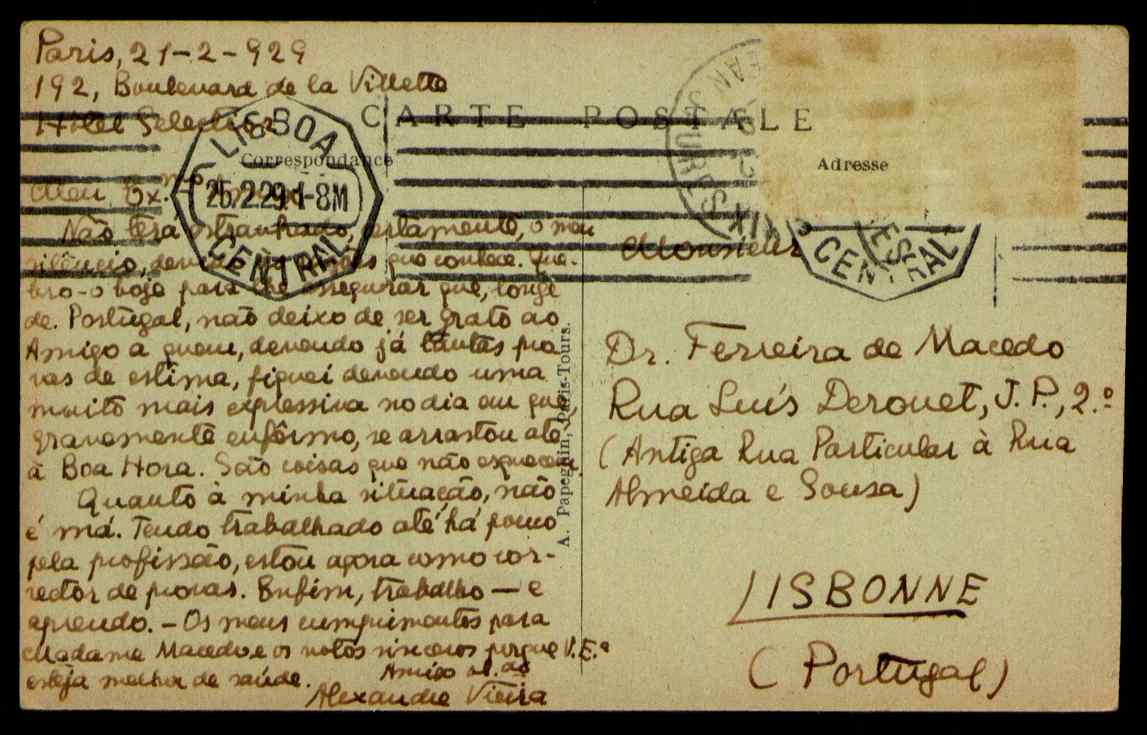 Paris, 21-2-929
192, Boulevard de la Villette
Hôtel Selection
CARTE POSTALE
Correspondance
Adresse
LISBOA
25.2.29.1-8M
CENTRAL
JEAN JAURÈS
XIX
CENTRAL
Meu Ex.mo
Não terá estranhado, certamente, o meu
silêncio, que conhece. Que-
bro-o hoje para lhe assegurar que, longe
de Portugal, não deixo de ser grato ao
Amigo a quem, devendo já tantas pro-
vas de estima, fiquei devendo uma
muito mais expressiva no dia em que,
gravemente enfêrmo, se arrastou até
à Boa Hora. São coisas que não esquecem.
Quanto à minha situação, não
é má. Tendo trabalhado até há pouco
pela profissão, estou agora como cor-
rector de provas. Enfim, trabalho — e
aprendo. — Os meus cumprimentos para
Madame Macedo e os votos sinceros porque V. E.ª
esteja melhor de saúde.
Amigo
Alexandre Vieira
A. Papeghin, Paris-Tours.
Monsieur
Dr. Ferreira de Macedo
Rua Luís Derouet, J. P., 2.º
(Antiga Rua Particular à Rua
Almeida e Sousa)
LISBONNE
(Portugal)